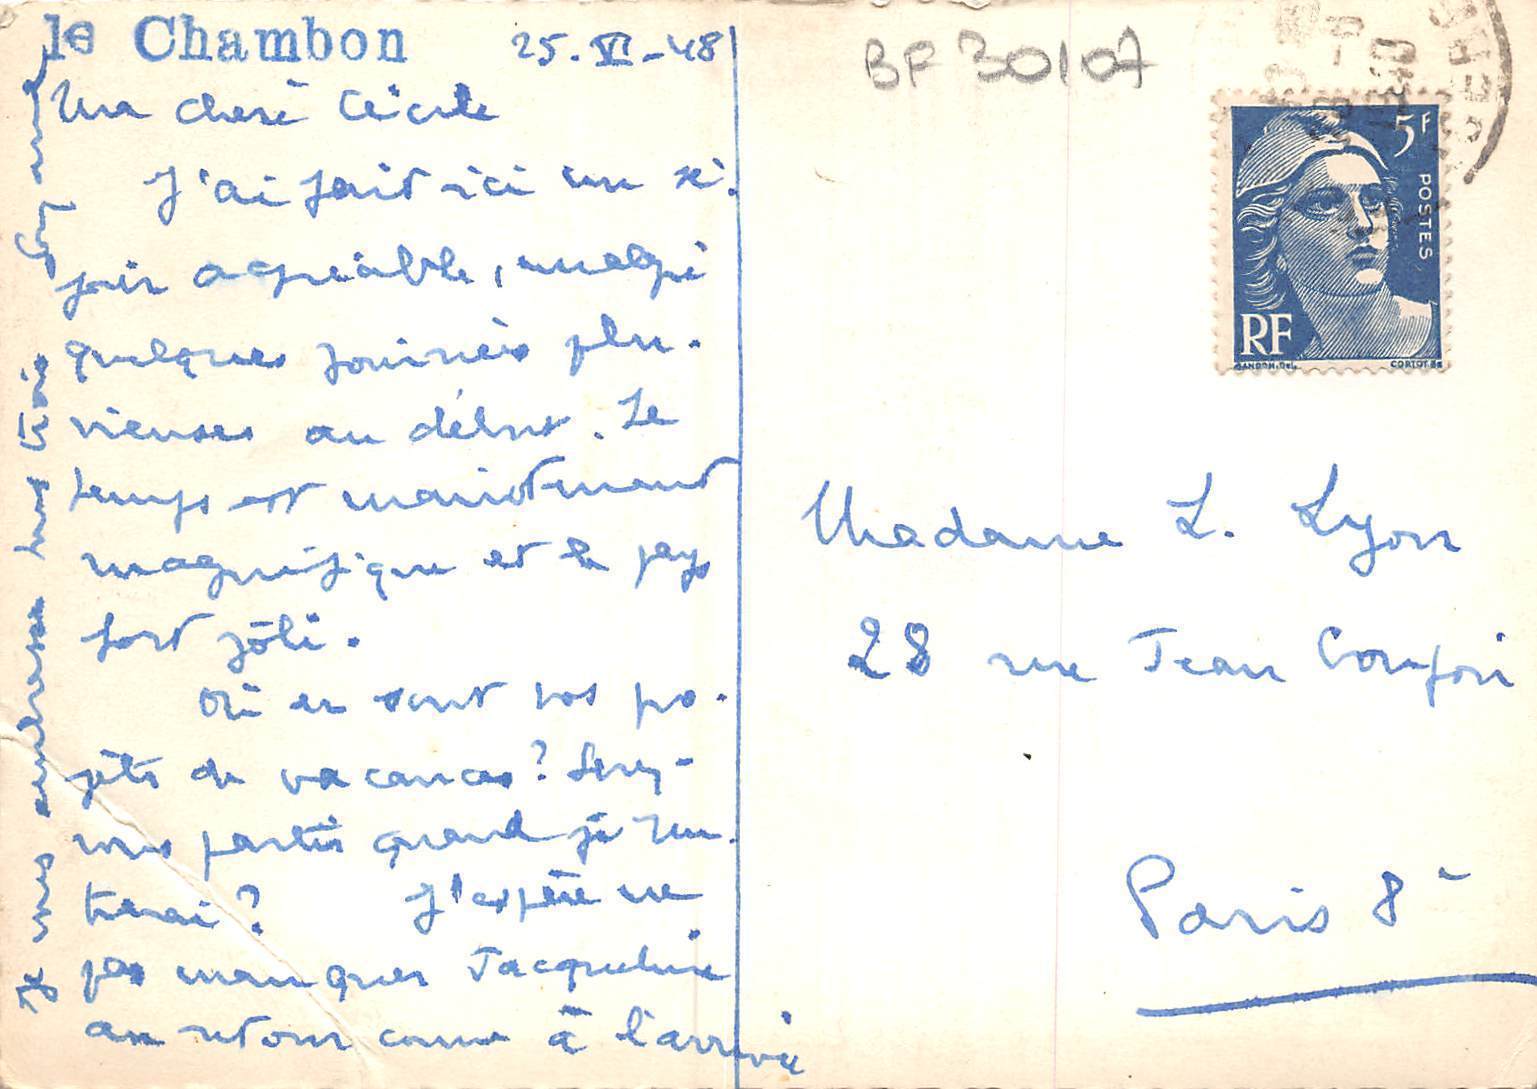 le Chambon 25-VI-48
Ma chere Cécile
J'ai fait ici un sé-
jour agréable, malgré
quelques journées plu-
vieuses au début. Le
temps est maintenant
magnifique et le pays
fort joli.
Où en sont vos pro-
jets de vacances? Serez-
vous partis quand je ren-
trerai? J'espère ne
pas manquer Jacqueline
au retour comme à l'arrivée
Je vous embrasse tous trois
BF 30107
5F
POSTES
RF
GANDON.DEL.
CORTOT SC
Madame L. Lyon
28 rue Jean Goujon
Paris 8e